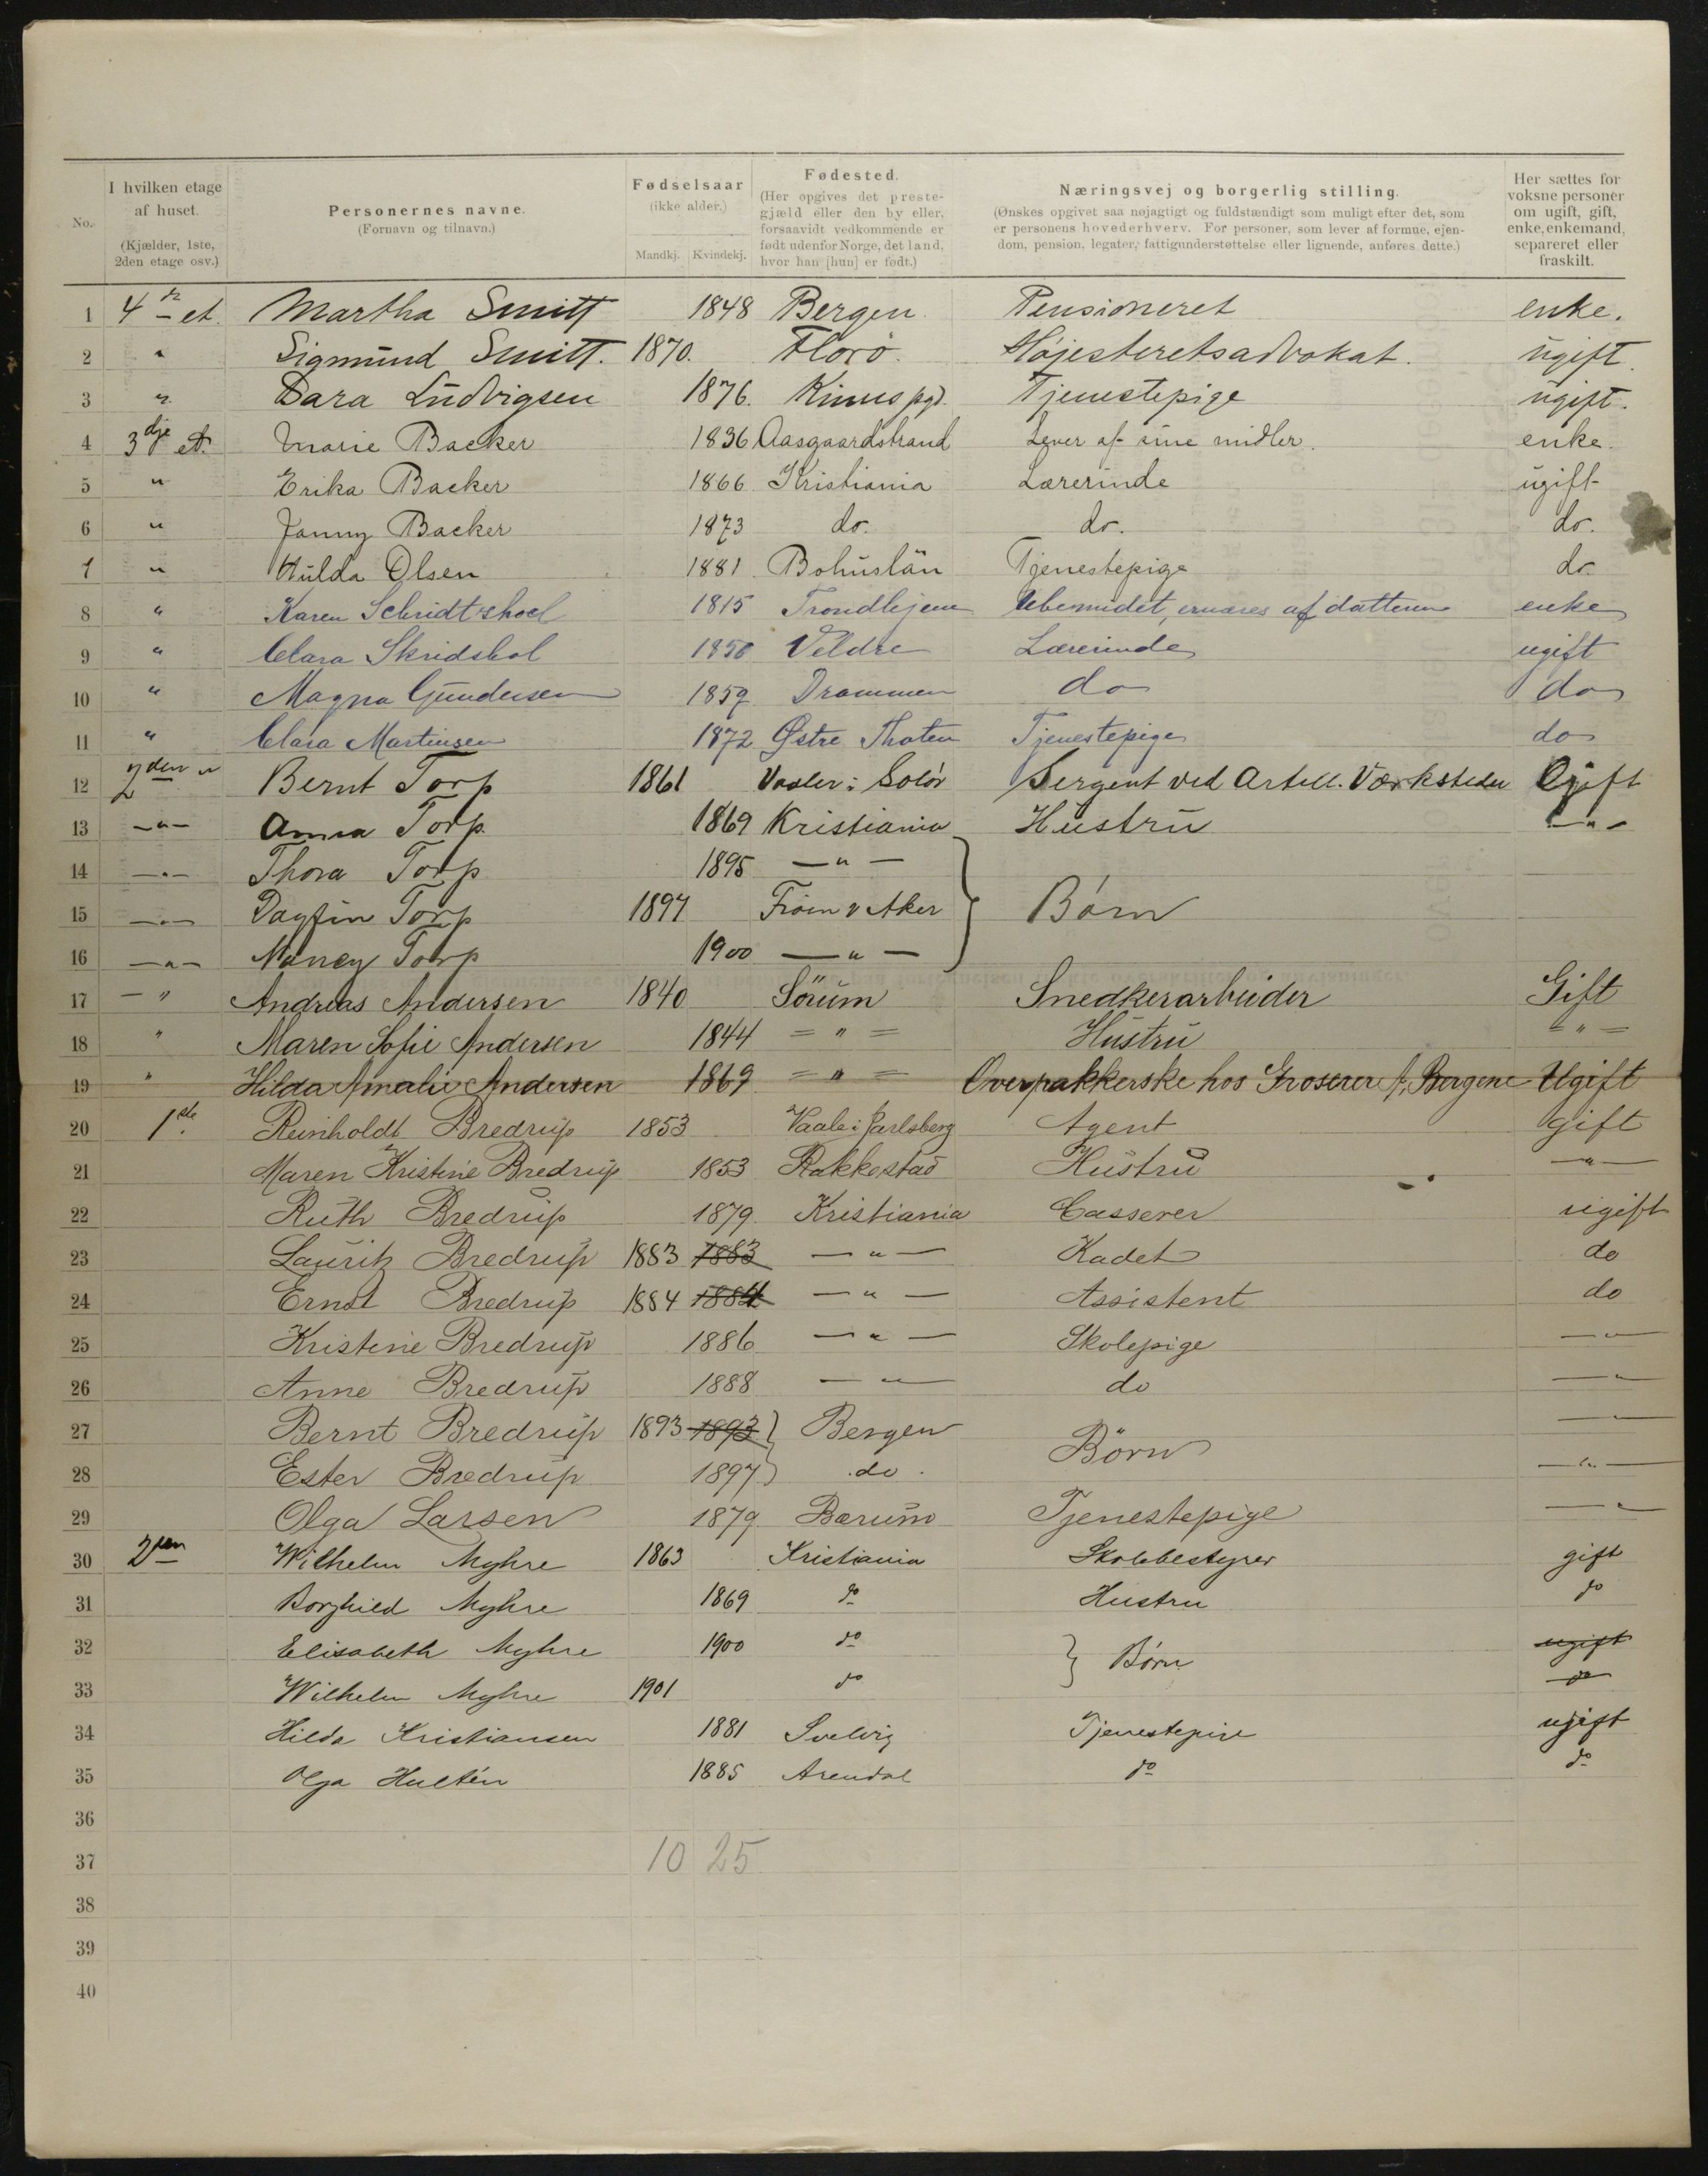 No.
I hvilken etage af huset. (Kjælder, 1ste, 2den etage osv.)
Personernes navne. (Fornavn og tilnavn.)
Fødselsaar (ikke alder.) Mandkj. Kvindekj.
Fødested. (Her opgives det prestegjæld eller den by eller, forsaavidt vedkommende er født udenfor Norge, det land, hvor han [hun] er født.)
Næringsvej og borgerlig stilling. (Ønskes opgivet saa nøjagtigt og fuldstændigt som muligt efter det, som er personens hovederhverv. For personer, som lever af formue, ejendom, pension, legater, fattigunderstøttelse eller lignende, anføres dette.)
Her sættes for voksne personer om ugift, gift, enke, enkemand, separeret eller fraskilt.
1 4 et. Martha Smitt 1848 Bergen. Pensioneret enke.
2 " Sigmund Smitt. 1870. Florö. Højesteretsadvokat. ugift.
3 " Dara Ludvigsen 1876. Kinns pgd. Tjenestepige ugift.
4 3dje et. Marie Backer 1836 Aasgaardstrand Lever af sine midler. enke.
5 " Erika Backer 1866 Kristiania Lærerinde ugift
6 " Janny Backer 1873 do. do. do.
7 " Hulda Olsen 1881 Bohuslän Tjenestepige do.
8 " Karen 1815 Trondhjem Ubemidet, ernæres af datteren enke
9 " Clara Skridshol 1850 Veldre Lærerinde ugift
10 " Magna Gundersen 1859 Drammen do do
11 " Clara Martinsen 1872 Østre Thoten Tjenestepige do
12 2den " Bernt Torp 1861 Vaaler i Solör Sergent ved Artill. Værksteder Gift
13 — " — Anna Torp 1869 Kristiania Hustru — " —
14 — " — Thora Torp 1895 — " —
15 — " — Dagfin Torp 1897 Fröen v Aker Börn
16 — " — Nancy Torp 1900 — " —
17 — " Andreas Andersen 1840 Sörum Snedkerarbeider Gift
18 " Maren Sofie Andersen 1844 = " = Hustru = " =
19 " Hilda Amalie Andersen 1869 = " = Overpakkerske hos Groserer A, Bergene Ugift
20 1ste. Reinholdt Bredrup 1853 Vaale i Jarlsberg Agent gift
21 Maren Kristine Bredrup 1853 Rakkestad Hustru — " —
22 Ruth Bredrup 1879 Kristiania Casserer ugift
23 Lauritz Bredrup 1883 1883 — " — Kadet do
24 Ernst Bredrup 1884 1884 — " — Assistent do
25 Kristine Bredrup 1886 — " — Skolepige — " —
26 Anne Bredrup 1888 — " — do — " —
27 Bernt Bredrup 1893 1893 Bergen Börn — " —
28 Ester Bredrup 1897 do. — " —
29 Olga Larsen 1879 Bærum Tjenestepige — " —
30 2den Wilhelm Myhre 1863 Kristiania Skolebestyrer gift
31 Borghild Myhre 1869 do Hustru do
32 Elisabeth Myhre 1900 do Börn ugift
33 Wilhelm Myhre 1901 do do
34 Hilda Kristiansen 1881 Svelvig Tjenestepige ugift
35 Olga Hultén 1885 Arendal do do
36
37 10 25
38
39
40